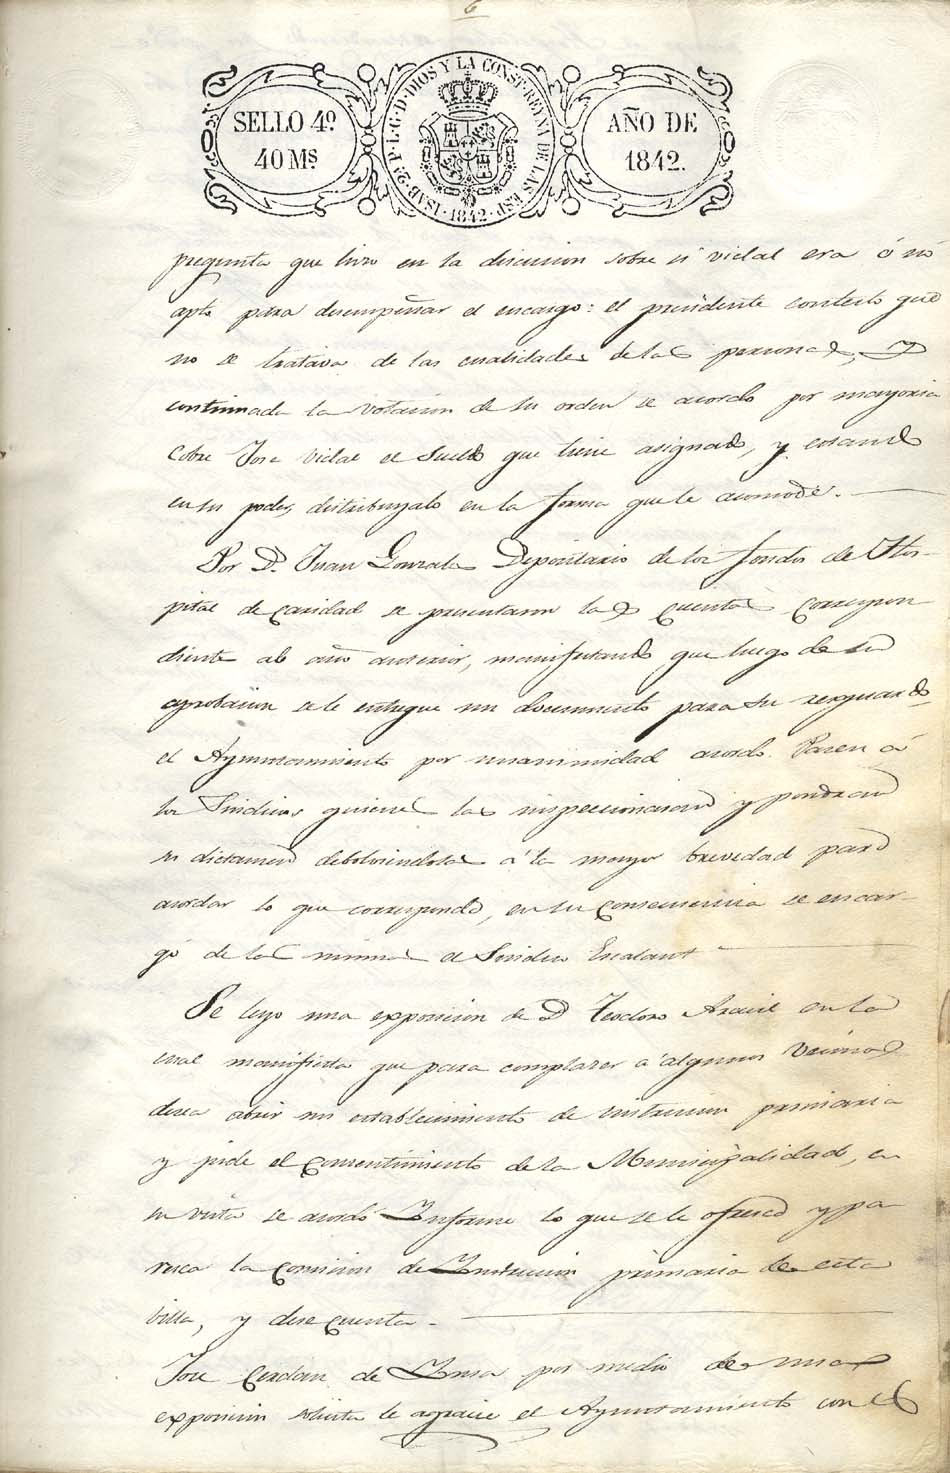 6
SELLO 4º
40 Ms.
ISAB. 2ª P. L. G. D. DIOS Y LA CONST. REYNA DE LAS ESP.
1842
AÑO DE
1842.
pregunta que hizo en la discusion sobre si vidal era ó no
apto para desempeñar el encargo: el presidente contesto que
no se tratava de las cualidades de la persona, y
continuada la votacion de su orden se acordo por mayoria
Cobre Jose Vidal el Sueldo que tiene asignado, y estando
en su poder, distribuyalo en la forma que le acomode.
Por D. Juan Gonzales Depositario de los fondos de Hos-
pital de caridad se presentaron las cuentas correspon
diente al año anterior, manifestando que luego de su
aprobacion se le entregue un documento para su resguardo,
el Ayuntamiento por unanimidad acordo. Pasen á
los Sindicos quienes las inspeccionaran y pondran
su dictamen debolviendolas á la mayor brevedad para
acordar lo que corresponda, en su consecuencia se encar-
gó de las mismas el Sindico Escalant
Se leyo una exposicion de D Teodoro Aracil en la
cual manifiesta que para complazer a algunos Vecinos
desea abrir un establecimiento de instruccion primaria
y pide el Consentimiento de la Municipalidad, en
su vista se acordó Informe lo que se le ofresca y pa
resca la Comision de Instruccion primaria de esta
villa, y dese cuenta.
Jose Cerdan de par medio de una
exposicion solicita le agracie el Ayuntamiento con el